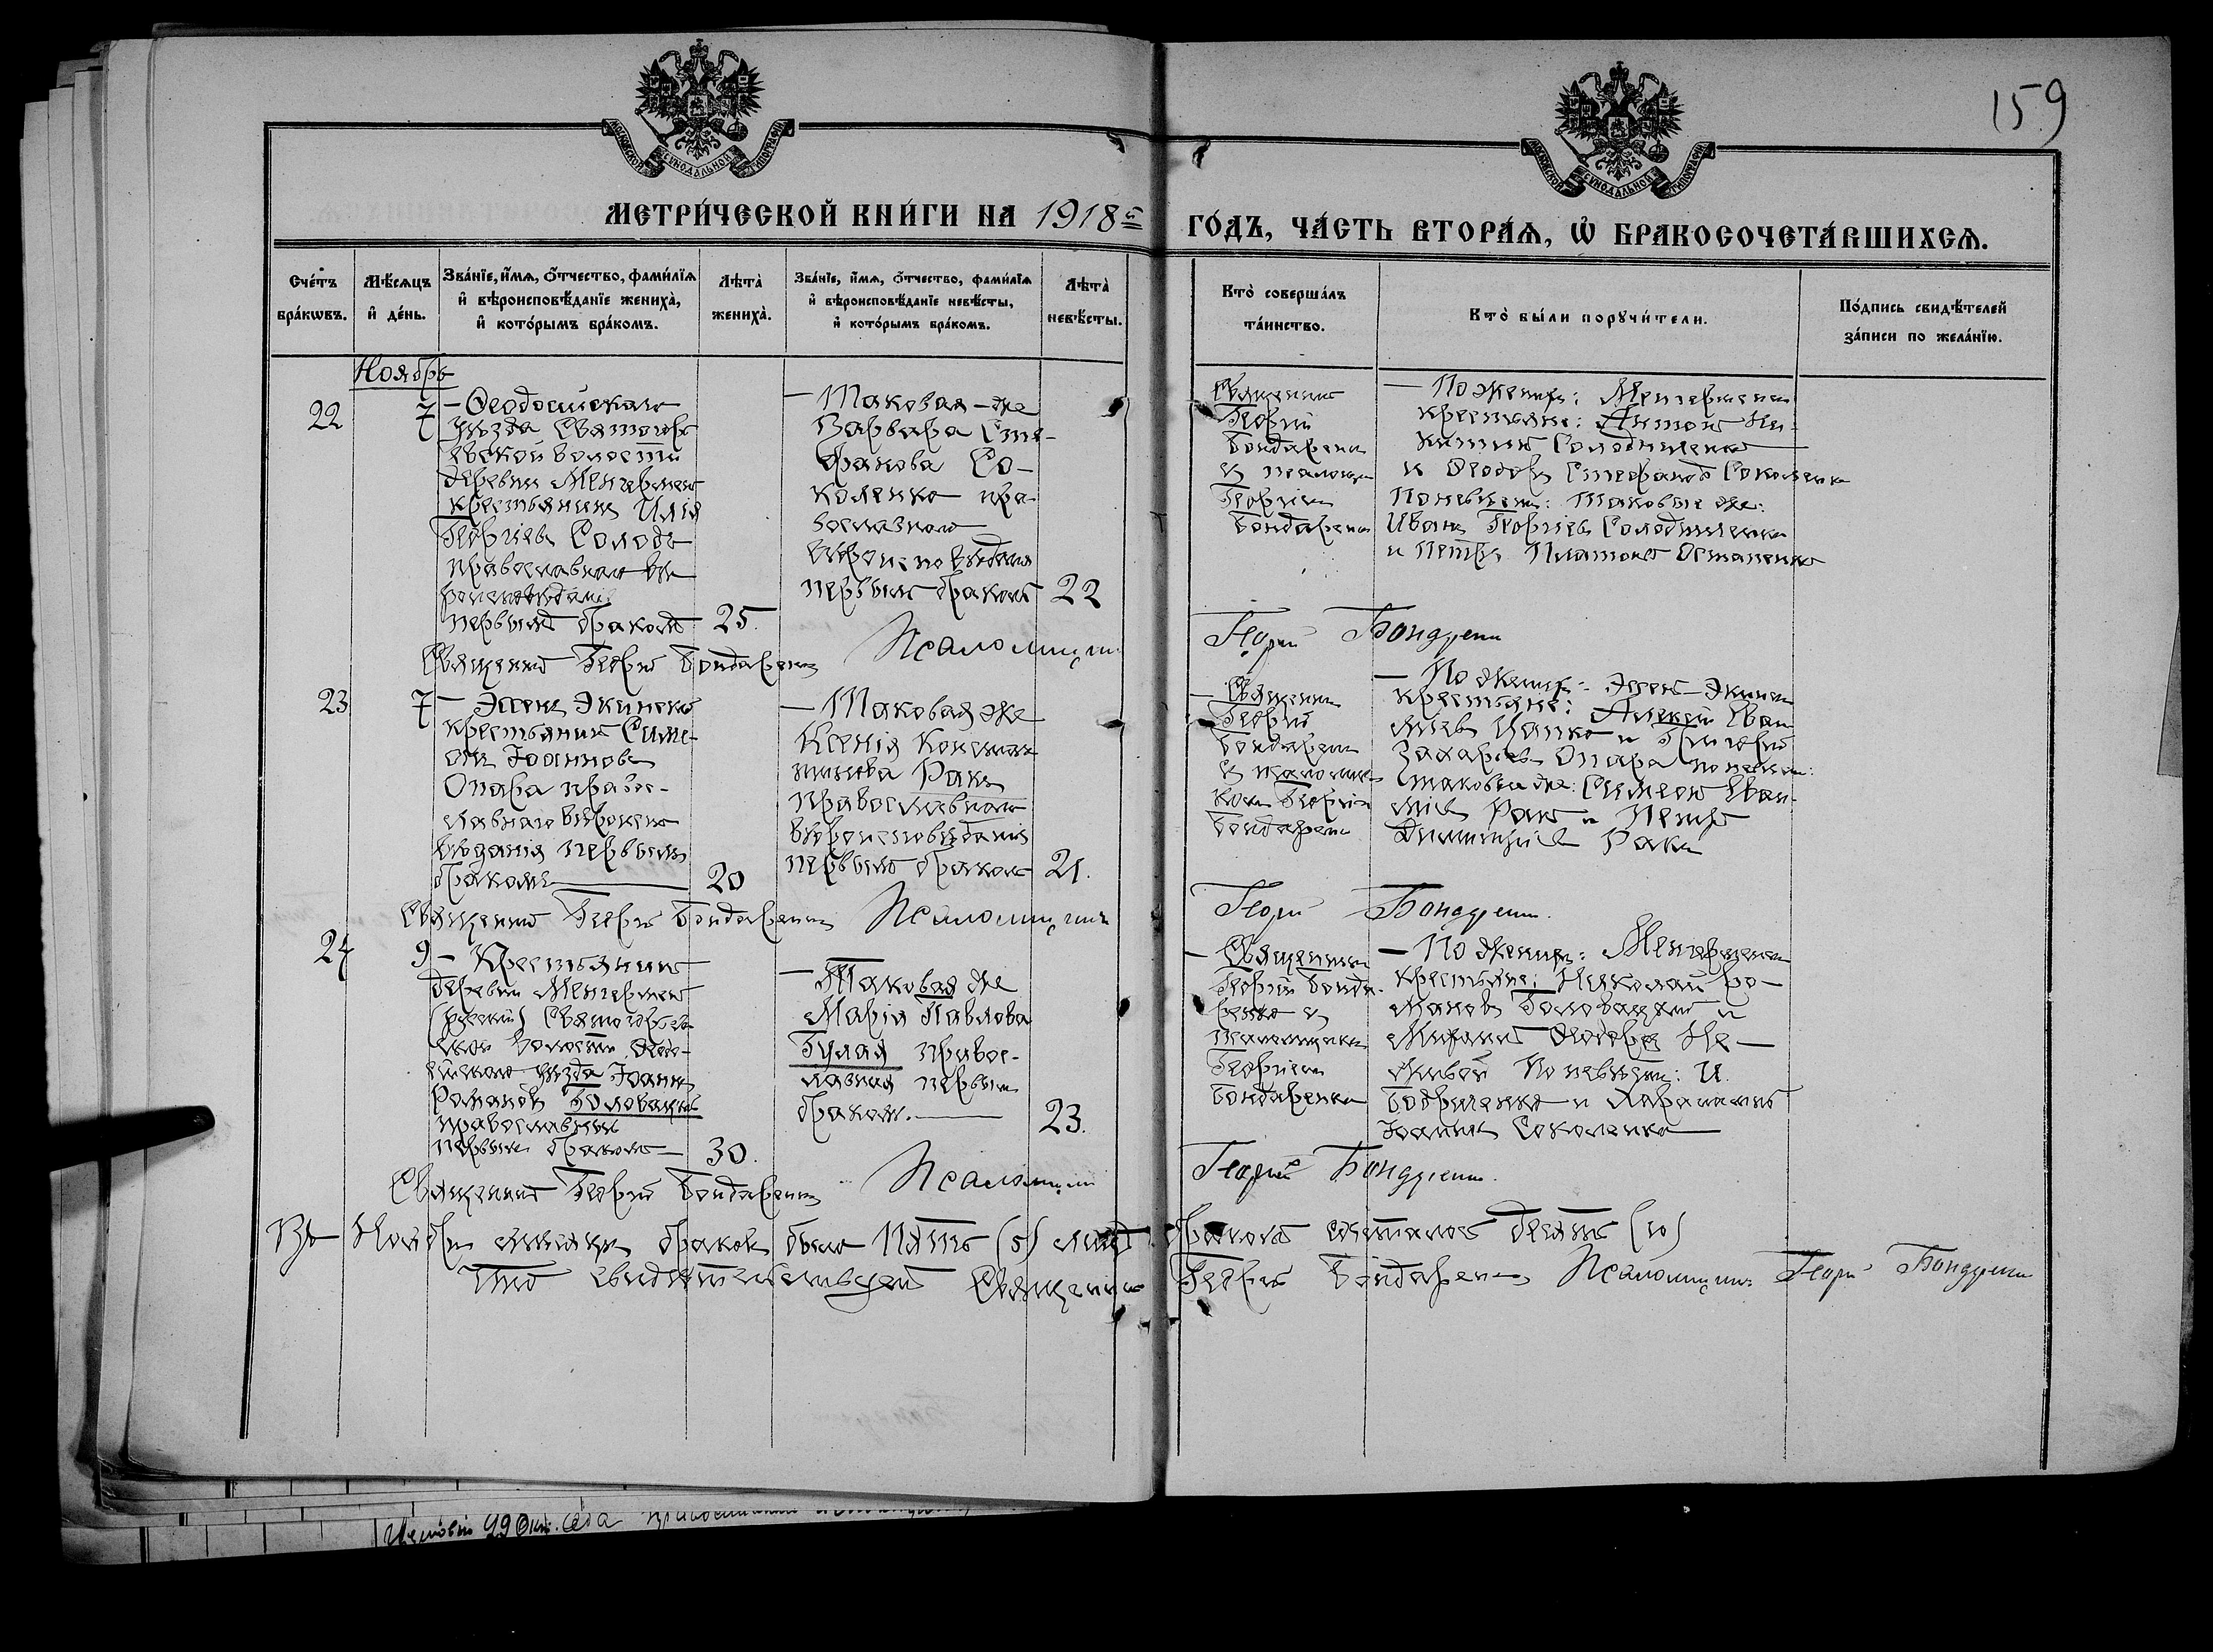 159
МОСКОВСКОЙ СѴНОДАЛЬНОЙ ТИПОГРАФІИ
МОСКОВСКОЙ СѴНОДАЛЬНОЙ ТИПОГРАФІИ
МЕТРИ́ЧЕСКОЙ КНИ́ГИ НА 1918й ГО́ДЪ, ЧА́СТЬ ВТОРА́Ѧ, Ѡ҆ БРАКОСОЧЕТА́ВШИХСѦ.
Сче́тъ бра́кѡвъ.
Мѣ́сяцъ и҆ де́нь.
Зва́нїе, и҆́мѧ, ѻ҆́тчество, фами́лїѧ
и҆ вѣроисповѣ́данїе жениха̀,
и҆ кото́рымъ бра́комъ.
Лѣ́та̀ жениха̀.
Зва́нїе, и҆́мѧ, ѻ҆́тчество, фами́лїѧ
и҆ вѣроисповѣ́данїе невѣ́сты,
и҆ кото́рымъ бра́комъ.
Лѣ́та̀ невѣ́сты.
Кто̀ соверша́лъ
та́инство.
Кто̀ бы́ли порꙋчи́тели.
По́дпись свидѣ́телей
за́писи по жела́нїю.
Ноябрь
22
7
— Ѳеодосійскаго
уѣзда Святогор
евской волости
деревни Менгермен
крестьянинъ Илія
Георгіевъ Солодъ
православнаго вѣ
роисповѣданія
первымъ бракомъ
25.
— Таковая-же
Варвара Сте-
фанова Со-
коленко пра-
вославнаго
вѣроисповѣданія
первымъ бракомъ
22
Священник
Георгій
Бондаренко
съ псаломщ
Георгіем
Бондаренко
— По женихѣ:
крестьяне: Антонъ Ни-
китинъ Солодиленко
и Ѳеодоръ Стефановъ Соколенко
По невѣстѣ: таковые же:
Иванъ Георгіевъ Солодиленко
и Петръ Платоновъ Остапенко
Священникъ Георгій Бондаренко
Псаломщик
Георгій Бондаренко
23
7
— Эссенъ Экинск
крестьянинъ Симе-
онъ Іоанновъ
Опара правос-
лавнаго вѣроиспо
вѣданія первымъ
бракомъ
20
— Таковая же
Ксенія Констан
тинова Ракъ
православнаго
вѣроисповѣданія
первымъ бракомъ
21.
— Священник
Георгій
Бондаренко
съ псаломщи
комъ Георгіем
Бондаренко
— По женихѣ: Эссенъ-Экинск
крестьяне: Алексѣй
Цапко и Григорій
Захаріевъ Опара по невѣстѣ:
таковые же: Симеонъ
Ракъ и Петръ
Димитріевъ Ракъ
Священникъ Георгій Бондаренко
Псаломщикъ
Георгій Бондаренко.
24
9
— Крестьянинъ
деревни Менгермен
(русскій) Святогорсв-
ской волости Ѳеодо-
сійскаго уѣзда Іоаннъ
Романовъ Головацкій
православный
первымъ бракомъ
30.
— Таковая же
Марія Павлова
Гулая правос-
лавная первым
бракомъ.
23.
— Священникъ
Георгій Бонда-
ренко съ
псаломщикомъ
Георгіем
Бондаренко
— По женихѣ:
крестьяне: Николай Ро-
мановъ Головацкій и
Ѳеодоръ Не-
живой По невѣстѣ: И.
и Харлампій
Іоаннъ Соколенко
Священникъ Георгій Бондаренко
Псаломщик
Георгій Бондаренко.
Въ Ноябрѣ мѣсяцѣ браковъ было Пять (5) лицъ бракомъ сочеталось десять (10)
Что свидѣтельствуетъ Священникъ Георгій Бондаренко Псаломщик Георгій Бондаренко